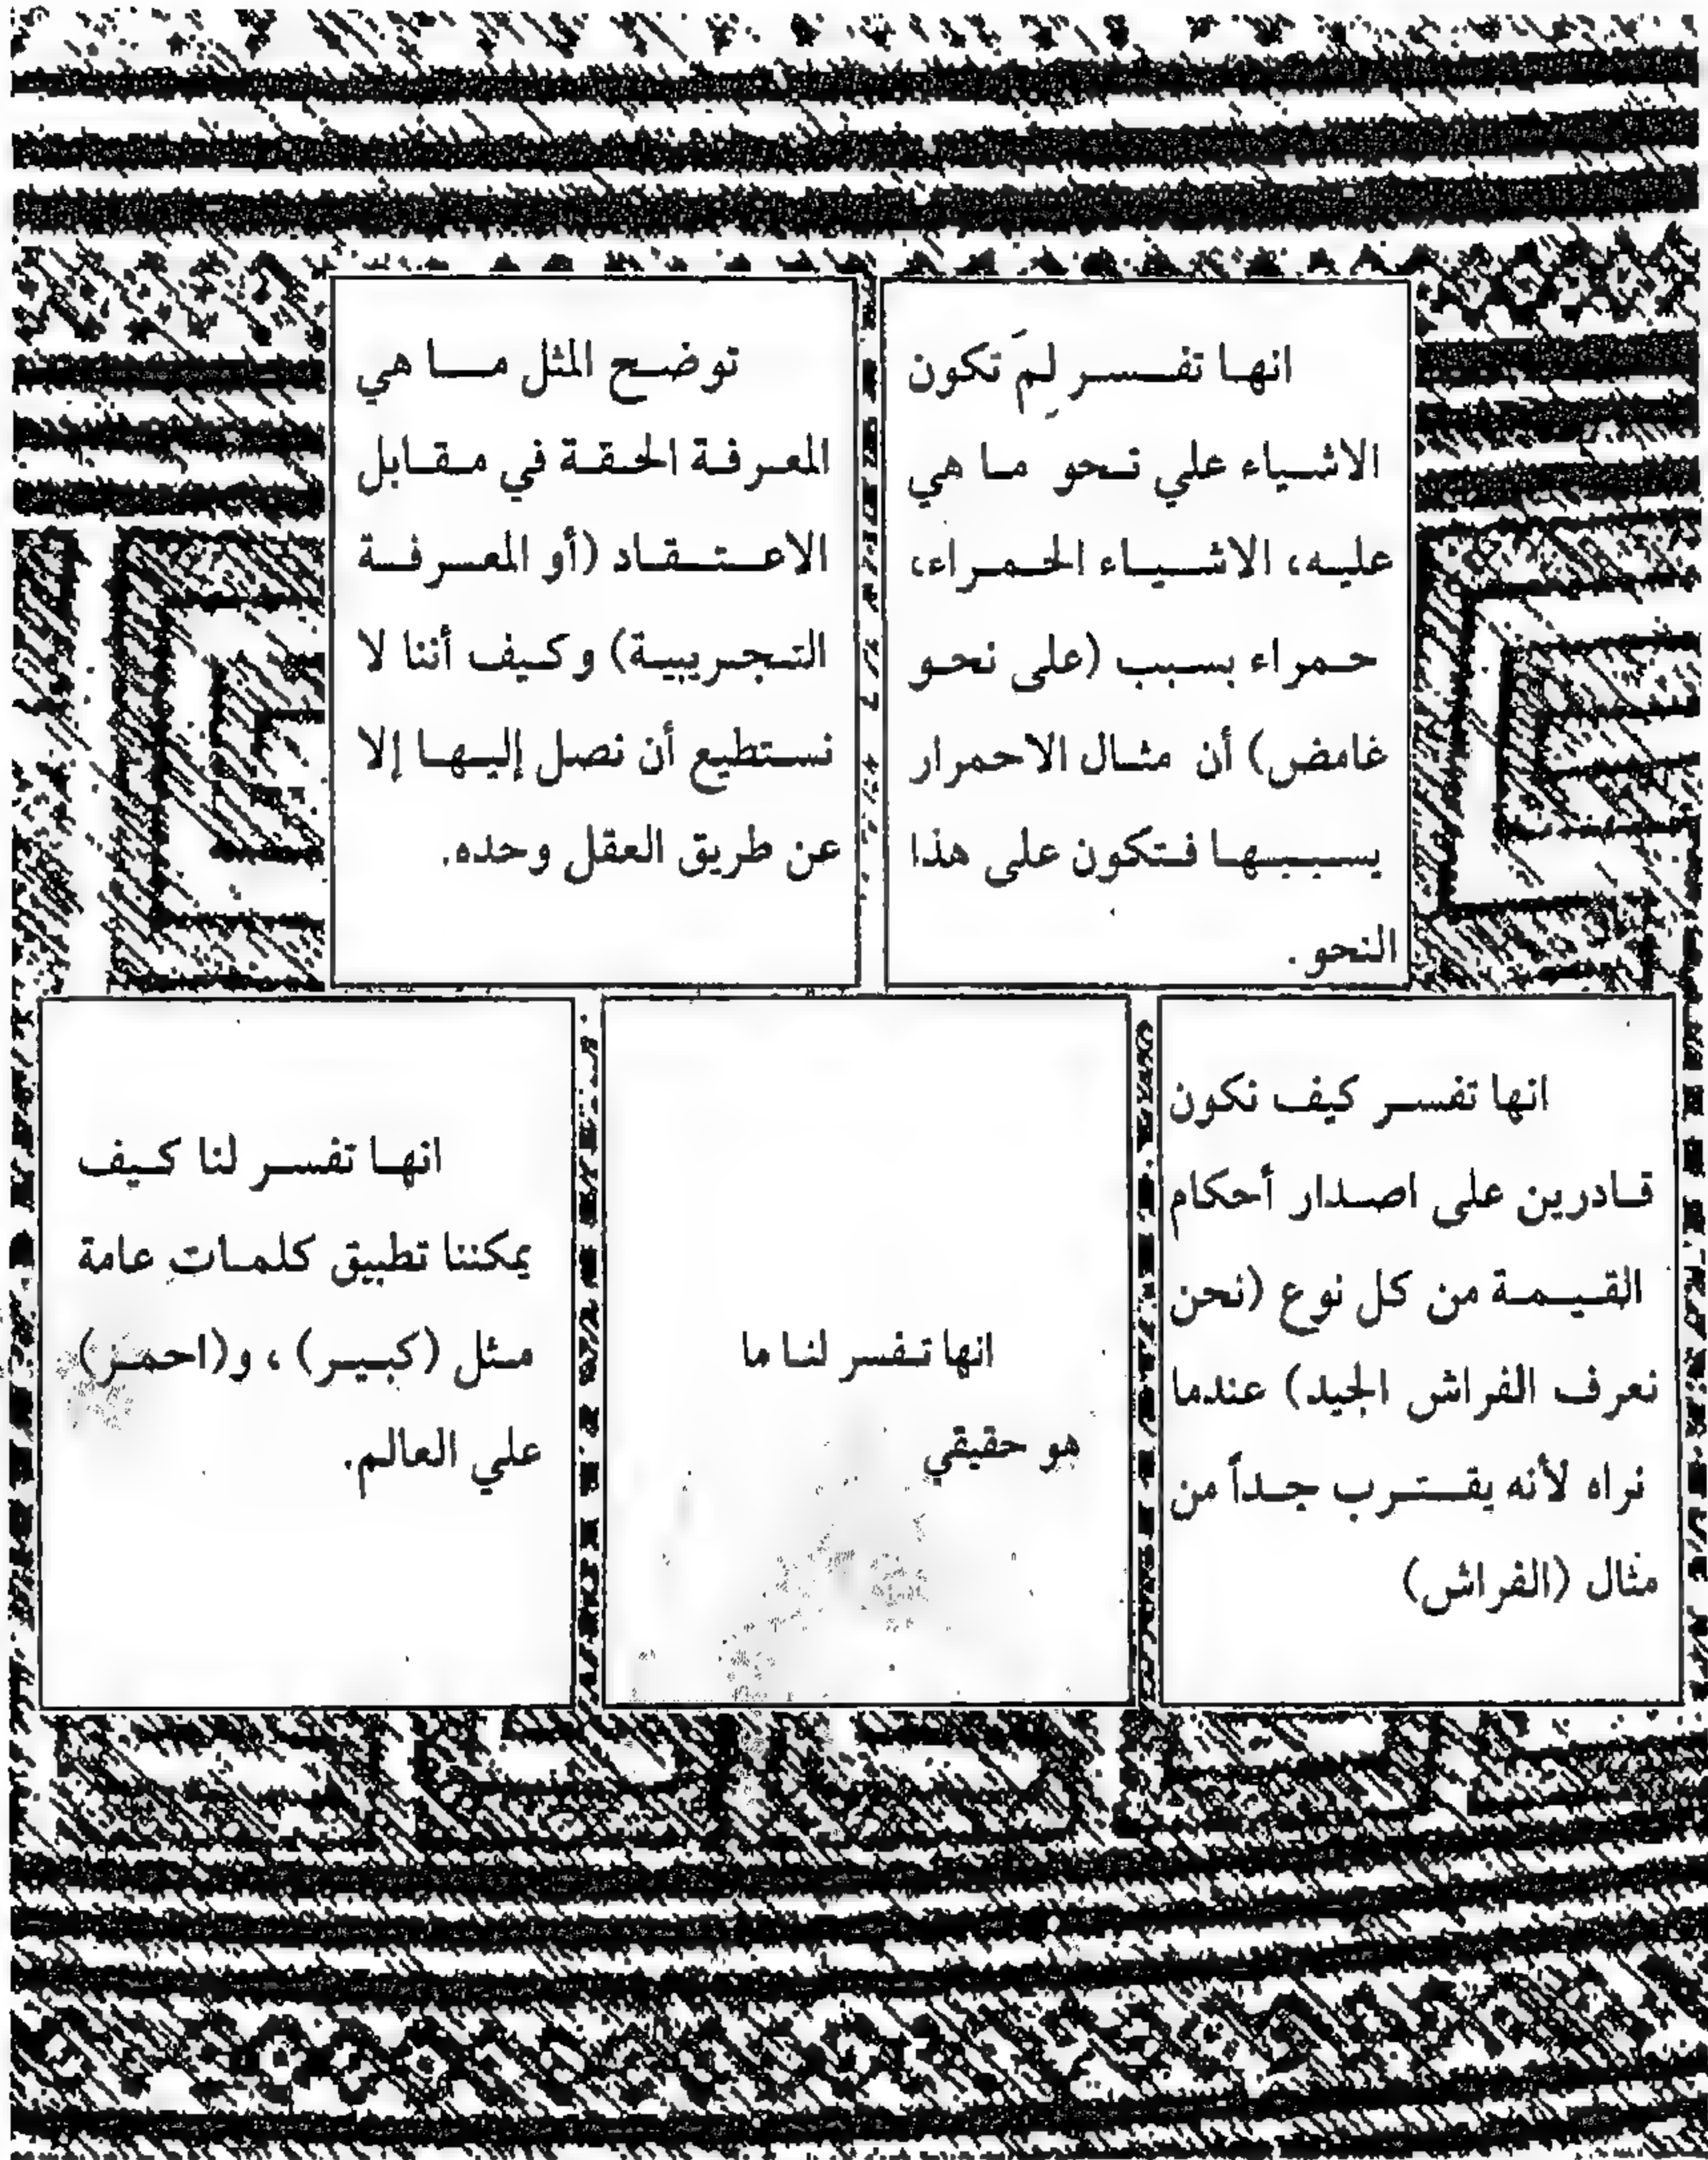 انها تفسر لِمَ تكون
الاشياء علي نحو ما هي
عليه، الاشياء الحمراء،
حمراء بسبب (على نحو
غامض) أن مثال الاحمرار
يسببها فتكون على هذا
النحو.
توضح المثل ما هي
المعرفة الحقة في مقابل
الاعتقاد (أو المعرفة
التجريبية) وكيف أننا لا
نستطيع أن نصل إليها إلا
عن طريق العقل وحده.
انها تفسر كيف نكون
قادرين على اصدار أحكام
القيمة من كل نوع (نحن
نعرف الفراش الجيد) عندما
نراه لأنه يقترب جداً من
مثال (الفراش)
انها تفسر لنا ما
هو حقيقي
انها تفسر لنا كيف
يمكننا تطبيق كلمات عامة
مثل (كبير)، و(احمر)
علي العالم.